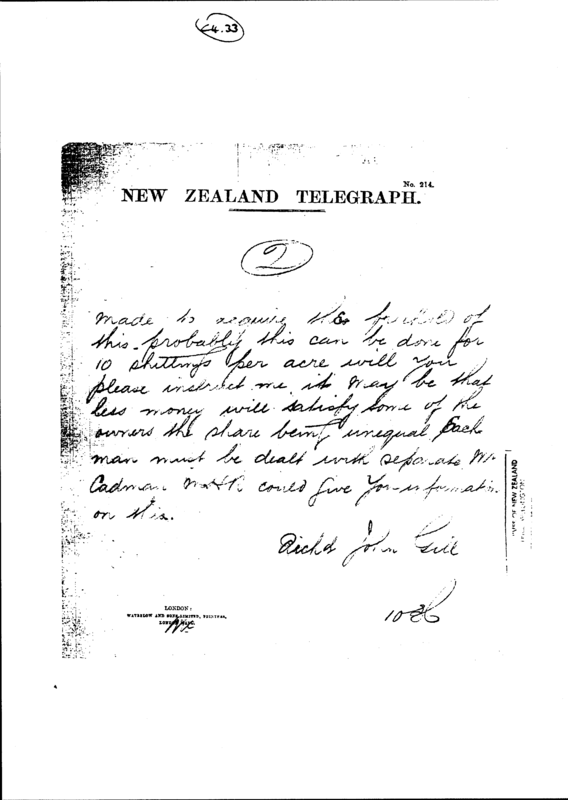 C4.33
No. 214.
NEW ZEALAND TELEGRAPH.
2
made to acquire the freehold of
this probably this can be done for
10 shillings per acre will you
please instruct me it may be that
less money will satisfy some of the
owners the share being unequal Each
man must be dealt with separate Mr
Cadman MHR could give you information
on this.
Richd John Gill
LONDON:
WATERLOW AND SONS LIMITED,
LONDON WALL.
NEW ZEALAND